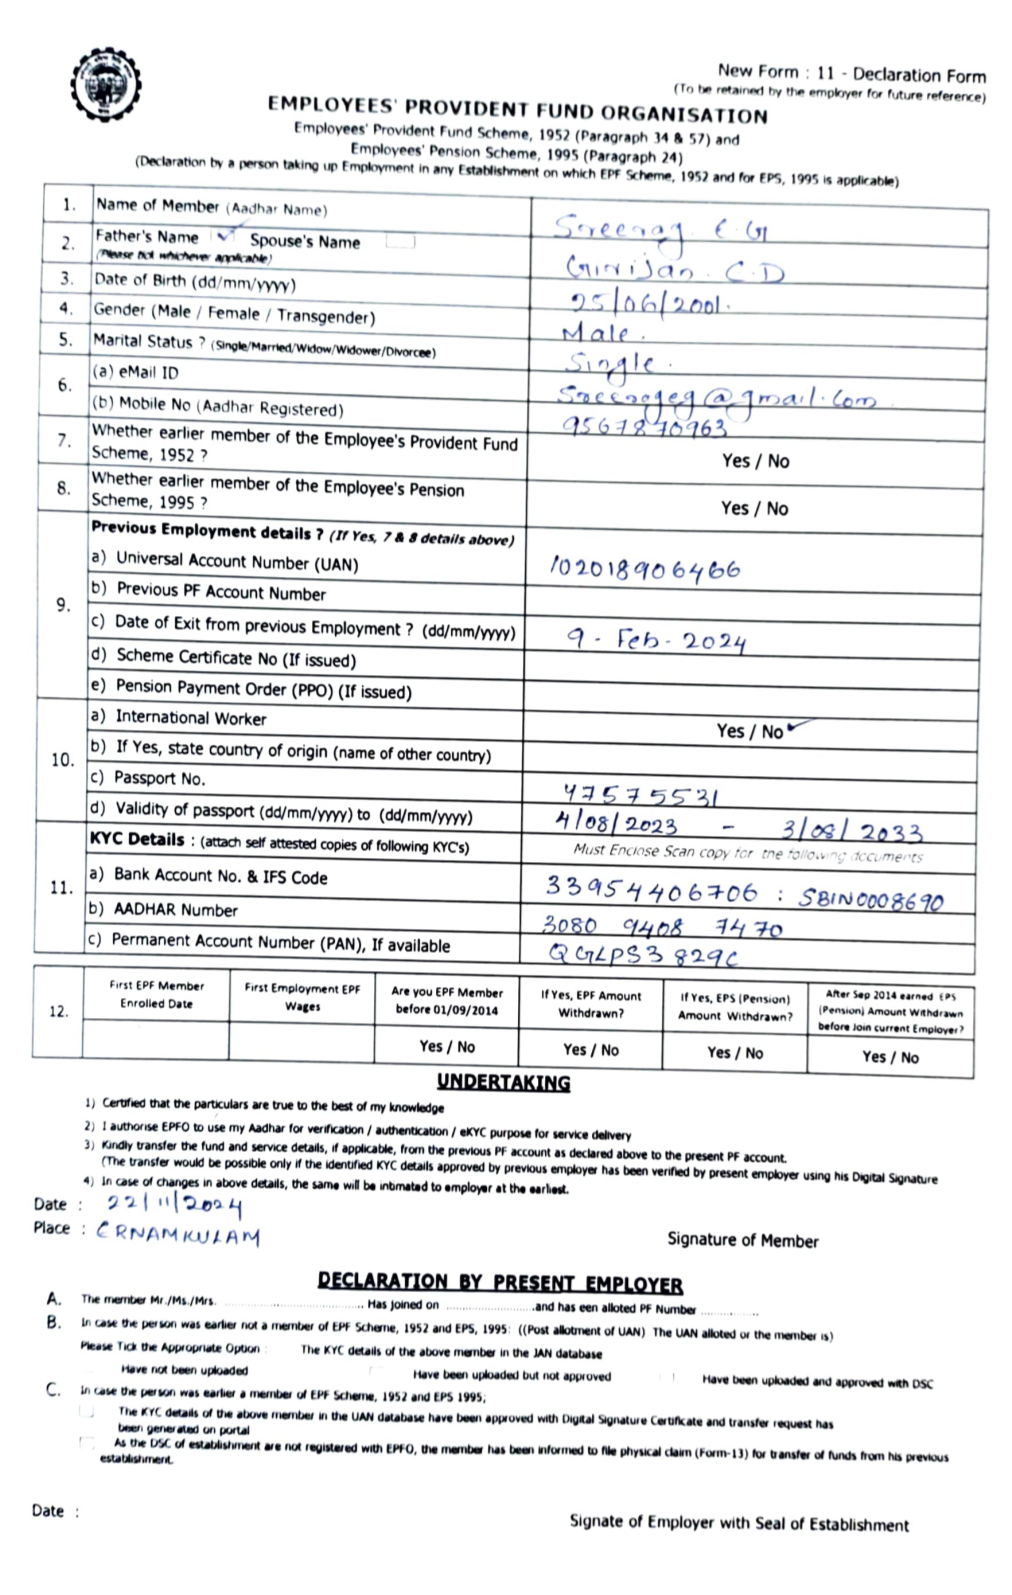 New Form : 11 - Declaration Form
(To be retained by the employer for future reference)
EMPLOYEES' PROVIDENT FUND ORGANISATION
Employees' Provident Fund Scheme, 1952 (Paragraph 34 & 57) and
Employees' Pension Scheme, 1995 (Paragraph 24)
(Declaration by a person taking up Employment in any Establishment on which EPF Scheme, 1952 and for EPS, 1995 is applicable)
1. Name of Member (Aadhar Name) Sreerag. E.G
2. Father's Name Spouse's Name Girijan. C.D
(Please tick whichever applicable)
3. Date of Birth (dd/mm/yyyy) 25/06/2001.
4. Gender (Male / Female / Transgender) Male.
5. Marital Status ? (Single/Married/Widow/Widower/Divorcee) Single.
6. (a) eMail ID Sreerageg@gmail.com
(b) Mobile No (Aadhar Registered) 9567870963
7. Whether earlier member of the Employee's Provident Fund
Scheme, 1952 ? Yes / No
8. Whether earlier member of the Employee's Pension
Scheme, 1995 ? Yes / No
9. Previous Employment details ? (If Yes, 7 & 8 details above)
a) Universal Account Number (UAN) 102018906466
b) Previous PF Account Number
c) Date of Exit from previous Employment ? (dd/mm/yyyy) 9 - Feb - 2024
d) Scheme Certificate No (If issued)
e) Pension Payment Order (PPO) (If issued)
10. a) International Worker Yes / No
b) If Yes, state country of origin (name of other country)
c) Passport No. 47575531
d) Validity of passport (dd/mm/yyyy) to (dd/mm/yyyy) 4/08/2023 - 3/08/2033
11. KYC Details : (attach self attested copies of following KYC's) Must Enclose Scan copy for the following documents
a) Bank Account No. & IFS Code 33954406706 : SBIN0008690
b) AADHAR Number 3080 9408 7470
c) Permanent Account Number (PAN), If available QGLPS3829C
12. First EPF Member Enrolled Date
First Employment EPF Wages
Are you EPF Member before 01/09/2014
If Yes, EPF Amount Withdrawn?
If Yes, EPS (Pension) Amount Withdrawn?
After Sep 2014 earned EPS (Pension) Amount Withdrawn before Join current Employer?
Yes / No Yes / No Yes / No Yes / No
UNDERTAKING
1) Certified that the particulars are true to the best of my knowledge
2) I authorise EPFO to use my Aadhar for verification / authentication / eKYC purpose for service delivery
3) Kindly transfer the fund and service details, if applicable, from the previous PF account as declared above to the present PF account.
(The transfer would be possible only if the identified KYC details approved by previous employer has been verified by present employer using his Digital Signature
4) In case of changes in above details, the same will be intimated to employer at the earliest.
Date : 22/11/2024
Place : ERNAMKULAM
Signature of Member
DECLARATION BY PRESENT EMPLOYER
A. The member Mr./Ms./Mrs. .................... Has joined on .................... and has een alloted PF Number ....................
B. In case the person was earlier not a member of EPF Scheme, 1952 and EPS, 1995: ((Post allotment of UAN) The UAN alloted or the member is)
Please Tick the Appropriate Option : The KYC details of the above member in the JAN database
Have not been uploaded Have been uploaded but not approved Have been uploaded and approved with DSC
C. In case the person was earlier a member of EPF Scheme, 1952 and EPS 1995;
The KYC details of the above member in the UAN database have been approved with Digital Signature Certificate and transfer request has
been generated on portal
As the DSC of establishment are not registered with EPFO, the member has been informed to file physical claim (Form-13) for transfer of funds from his previous
establishment.
Date :
Signate of Employer with Seal of Establishment